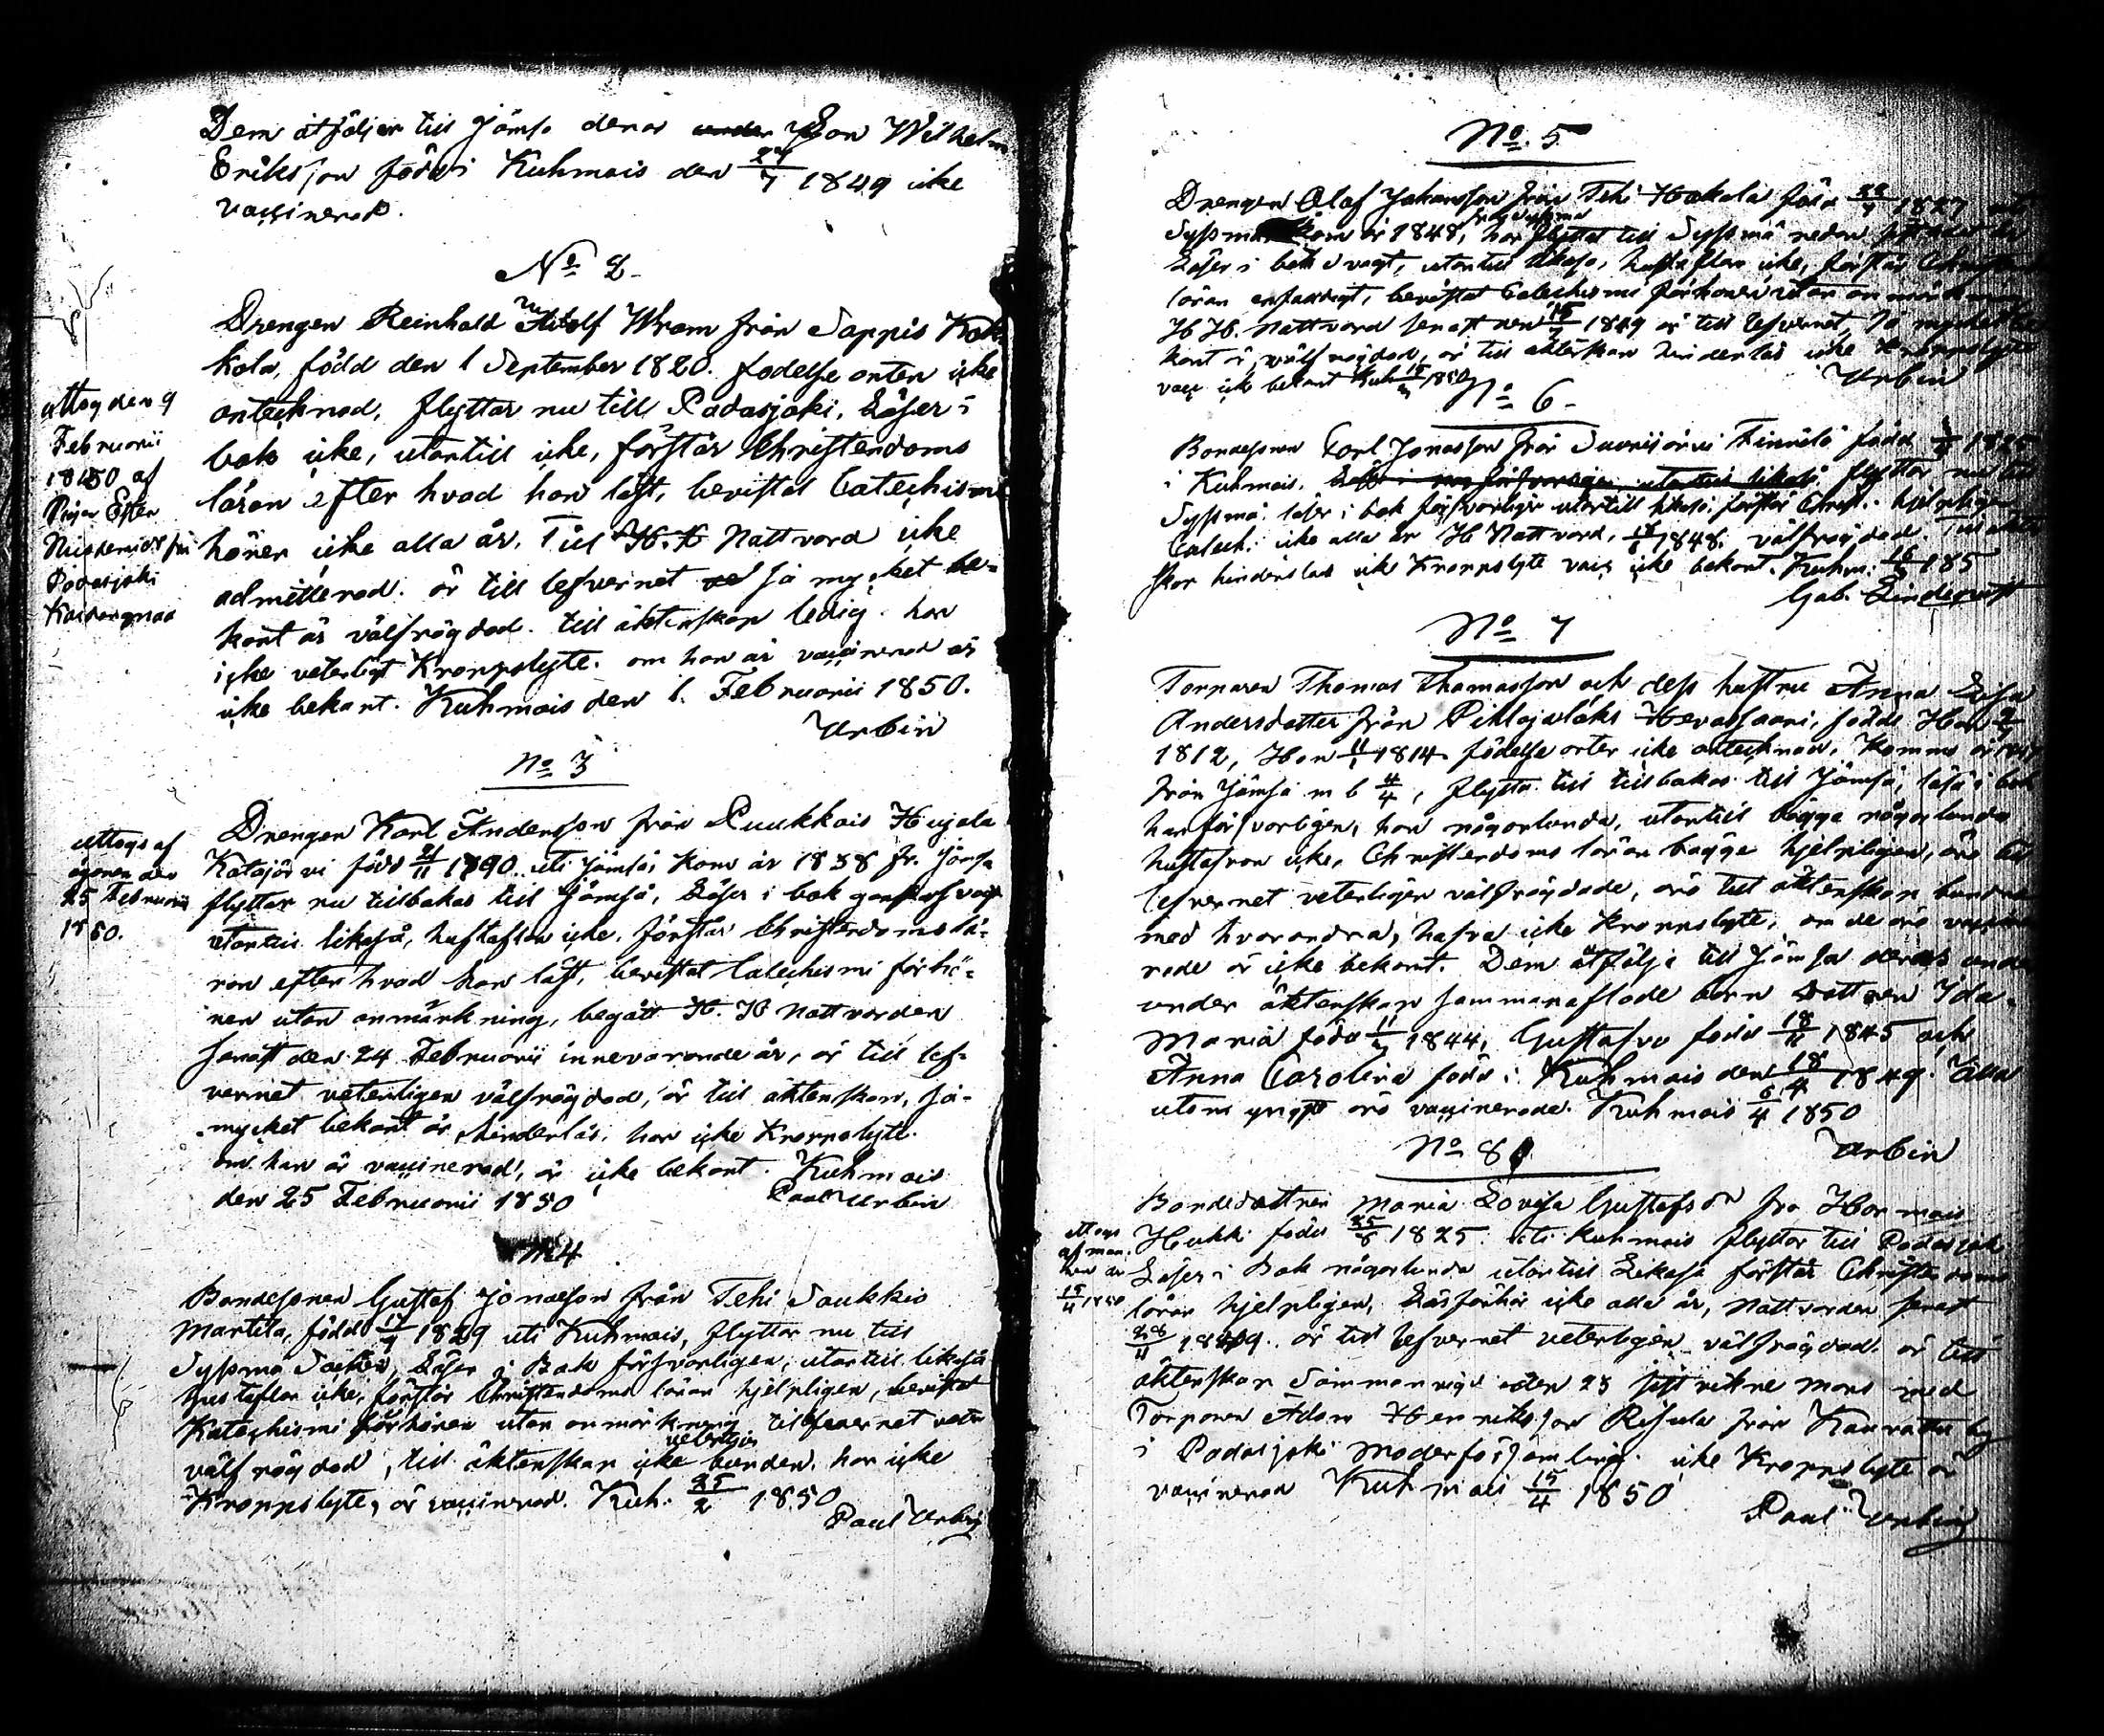 Dem åtföljer till Jämsä deras Son Wilhelm
Eriksson född i Kuhmois den 24/7 1849 icke
vaccinerad.
No 2.
Drengen Reinhold Adolf Wram från Sappis Kok
kola, född den 1 September 1820. födelse orten icke
antecknad, flyttar nu till Padasjoki. Läser i
bok icke, utantill icke, förstår Christendoms
läran efter hvad han läst, bevistat Catechismi
hören icke alla år. Till H. H. Nattvard icke
admitterad. är till lefvernet så mycket be-
kant är välfrägdad. till äktenskap ledig. har
icke veterligt Kroppslyte. om han är vaccinerad är
icke bekant. Kuhmois den 1. Februarii 1850.
Urbin
uttog den 9
Februarii
1850 af
Padasjoki
No 3
Drengen Karl Andersson från Puukkois Hujala
Katajärvi född 21/11 1890. uti Jämsä, kom år 1838 fr. Jämsä
flyttar nu tillbakas till Jämsä, Läser i bok
utantill likaså, hustaflan icke. förstår Christendoms lä-
ran efter hvad han läst, bevistat Catechismi förhö-
ren utan anmärkning, begått H. H. Nattvarden
senast den 24 Februarii innevarande år, är till lef-
vernet veterligen välfrägdad, är till äktenskap, så-
mycket bekant är, hinderlös, har icke Kroppslyte.
om han är vaccinerad, är icke bekant. Kuhmois
den 25 Februarii 1850 Paul Urbin
uttogs af
ägaren den
25 Februarii
1850.
No 4
Bondesonen Gustaf Jonasson från Tehi Saukkio
Martila, född 17/7 1829 uti Kuhmois, flyttar nu till
Sysmä Socken, Läser i Bok försvarligen, utantill likaså
hustaflan icke, förstår Christendoms läran hjelpligen, bevistat
Katechismi förhören utan anmärkning till lefvernet
välfrägdad, till äktenskap icke veterligen bunden. har icke
Kroppslyte, är vaccinerad. Kuh. 25/2 1850
Paul Urbin
No. 5
Drengen Olof Johansson från Tehi Hakala född 1827
Sysmä kom år 1848, från Sysmä har flyttat till Sysmä redan
Läser i bok svagt, utantill likaså, hustaflan icke, förstår
läran enfaldigt, bevistat Catechismi förhören utan anmärkning
H. H. Nattvard senast den 1849 är till lefvernet, så mycket be
kant är, välfrägdad, är till äktenskap hinderlös icke Kroppslyte
vacc icke bekant Kuh 1850
Urbin
No 6
Bondesonen Carl Jonasson från Finnilä född 1825
i Kuhmois. flyttar nu till
Sysmä. läser i bok försvarligen utantill likaså. förstår Christ. hjelpligen
Catech. icke alla år H Nattvard, 1848. välfrägdad. Till äkten
skap hinderslös icke Kroppslyte vacc icke bekant. Kuhm. 185
Gab. Lindqvist
No 7
Torparen Thomas Thomasson och dess hustru Anna Lisa
Andersdotter från Pihlajalaks Hevossaari, född Han
1812, Hon 11/1 1814 födelse orter icke antecknad. Kommo år
från Jämsä m b 4/4, flytta till tillbakas till Jämsä, läsa i bok
han försvarligen, hon någorlunda, utantill bägge någorlunda
hustaflan icke, Christendoms läran bägge hjelpligen, äro till
lefvernet veterligen välfrägdade, äro till äktenskap bundne
med hvarandra, hafva icke Kroppslyte, om de äro vaccine
rade är icke bekant. Dem åtfölja till Jämsä deras
under äktenskap sammanaflade barn Dottren Ida
Maria född 1844, Gustafva född 18/11 1845 och
Anna Carolina född i Kuhmois den 1849. Alla
utom yngst äro vaccinerade. Kuhmois 6/4 1850
Urbin
No 8
Bondedottren Maria Lovisa Gustafsdr fr. Harmois
Hukki född 25/8 1825. uti Kuhmois flyttar till Padasjoki
Läser i Bok någorlunda utantill Likaså förstår Christendoms
läran hjelpligen, Läsförhör icke alla år, Nattvarden senast
1849. är till lefvernet veterligen välfrägdad. är till
äktenskap Sammanvigd den 25 sistvikne Mars med
Torparen Adam Henriksson Risula från by
i Padasjoki Moderförsamling. icke Kroppslyte är
vaccinerad Kuhmois 15/4 1850
Paul Urbin
15/4 1850